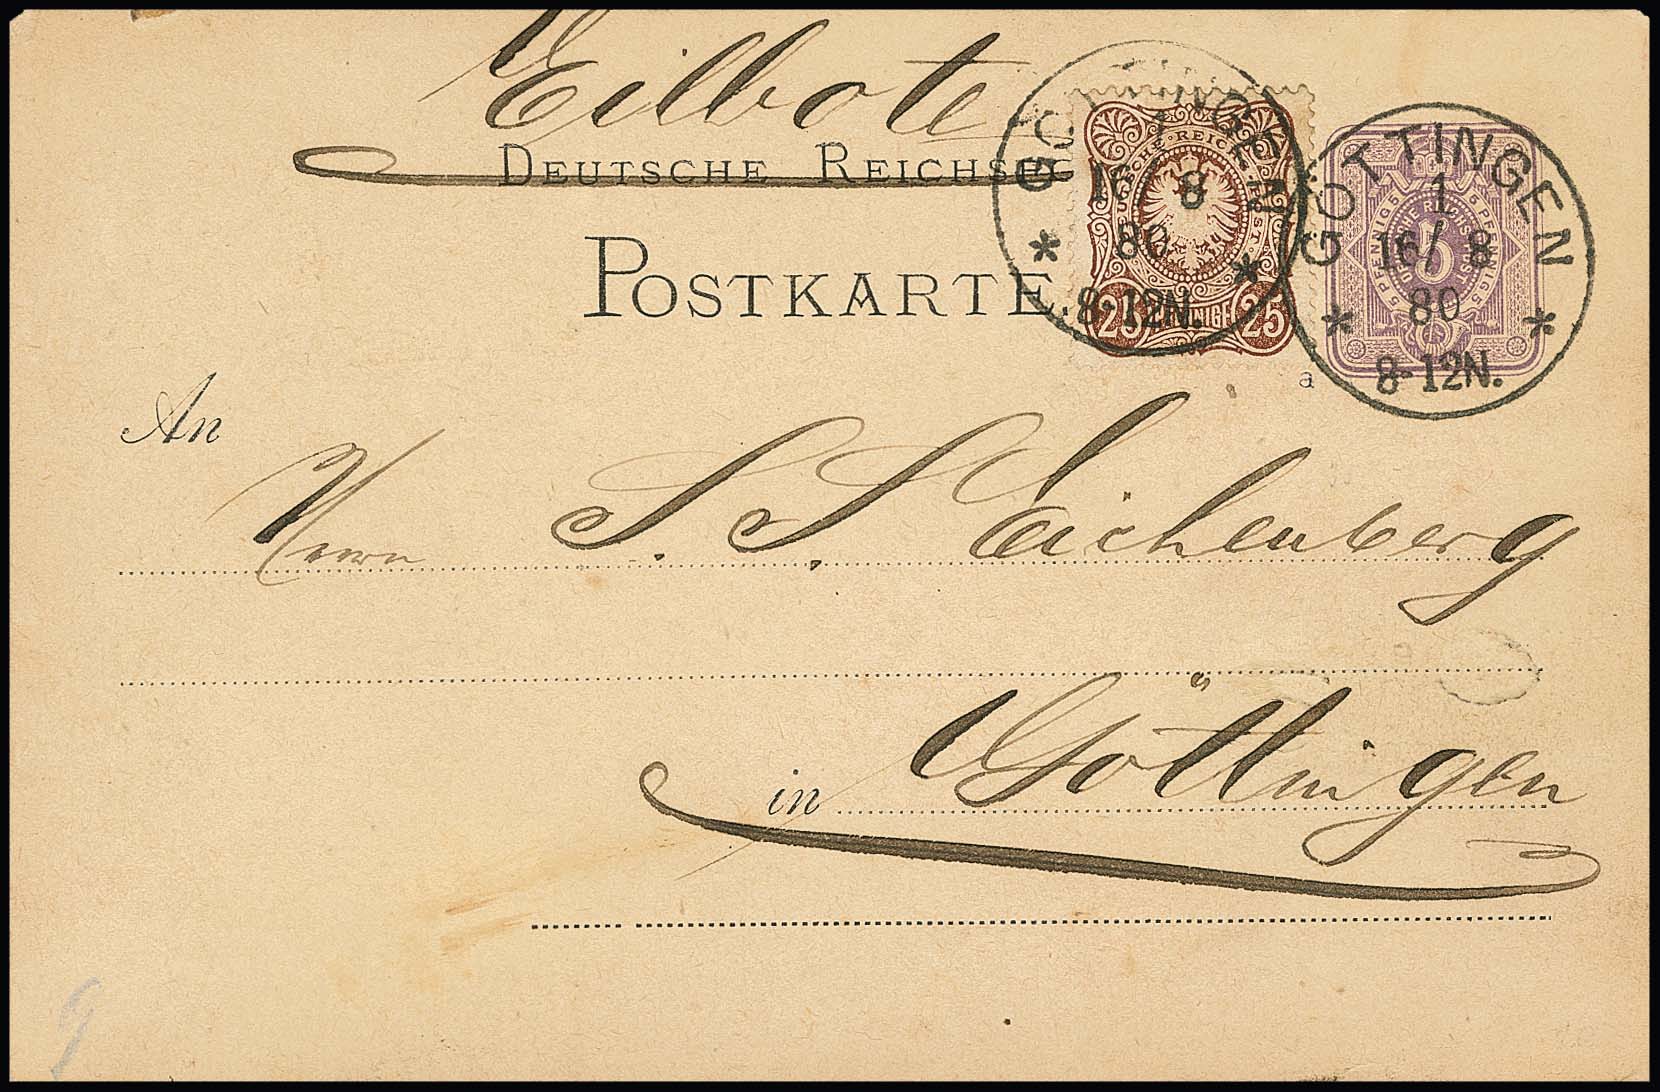 Eilbote
DEUTSCHE REICHSPO
POSTKARTE.
GÖTTINGEN
1
16 8
80
8-12N.
25 25
GÖTTINGEN
1
16/ 8
80
8-12N.
5
a
An
Herrn S. S. Eichenberg
in Göttingen